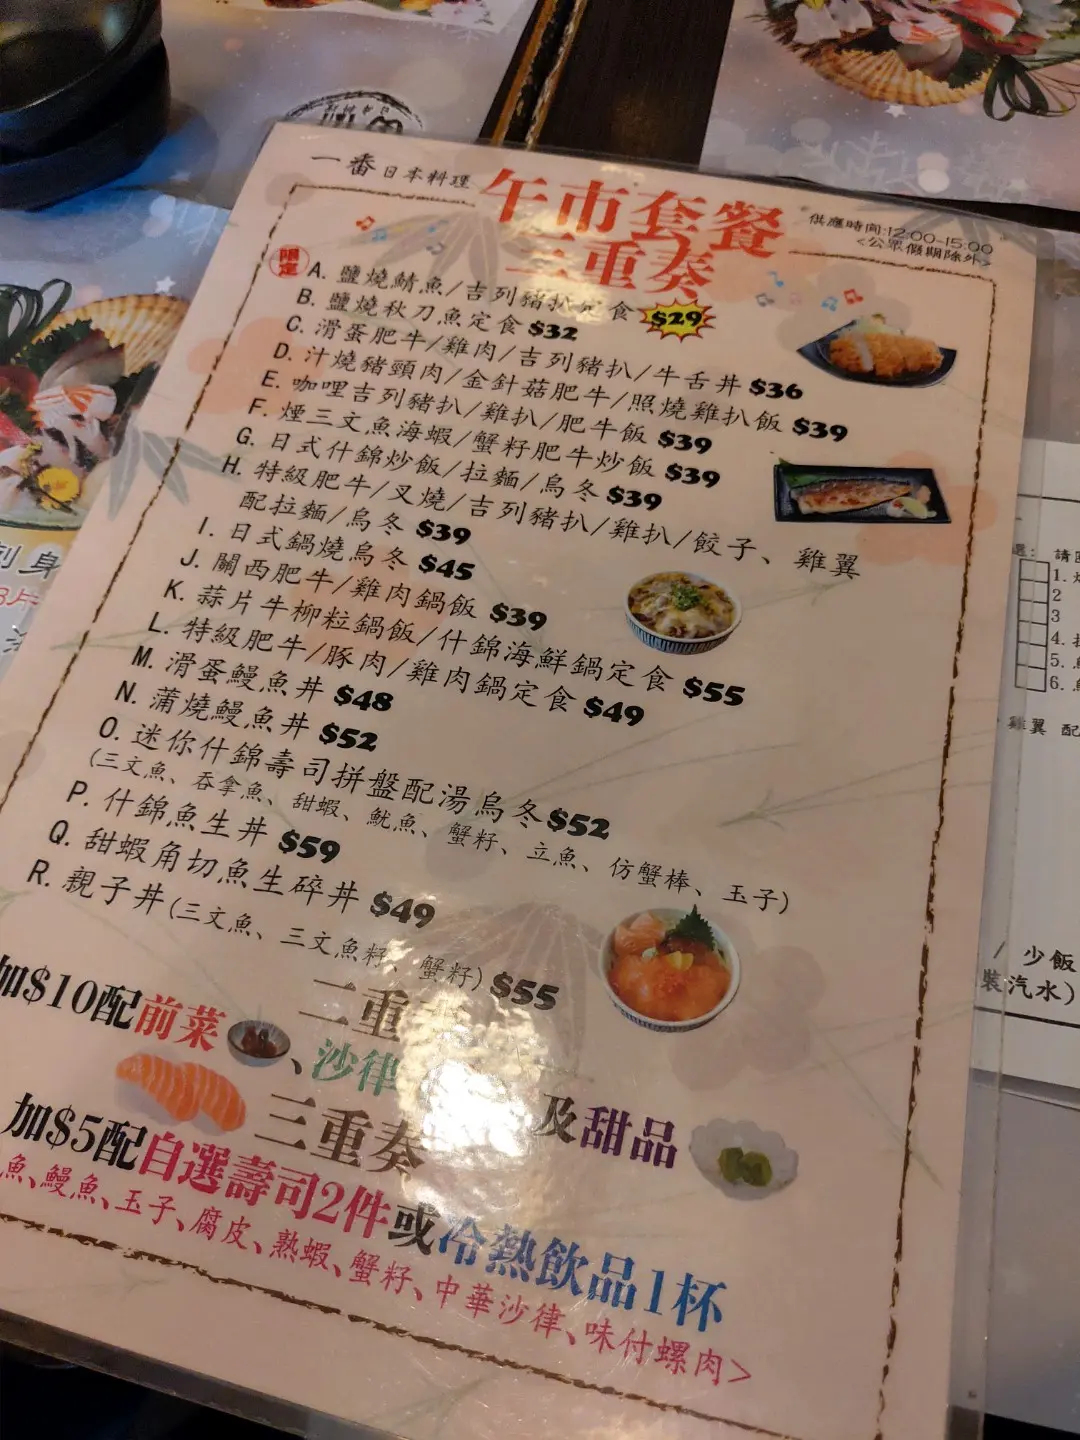 一番日本料理
午市套餐
三重奏
供應時間:12:00-15:00
<公眾假期除外>
限定
A. 鹽燒鯖魚/吉列豬扒定食 $29
B. 鹽燒秋刀魚定食 $32
C. 滑蛋肥牛/雞肉/吉列豬扒/牛舌丼 $36
D. 汁燒豬頸肉/金針菇肥牛/照燒雞扒飯 $39
E. 咖哩吉列豬扒/雞扒/肥牛飯 $39
F. 煙三文魚海蝦/蟹籽肥牛炒飯 $39
G. 日式什錦炒飯/拉麵/烏冬 $39
H. 特級肥牛/叉燒/吉列豬扒/雞扒/餃子、雞翼
配拉麵/烏冬 $39
I. 日式鍋燒烏冬 $45
J. 關西肥牛/雞肉鍋飯 $39
K. 蒜片牛柳粒鍋飯/什錦海鮮鍋定食 $55
L. 特級肥牛/豚肉/雞肉鍋定食 $49
M. 滑蛋鰻魚丼 $48
N. 蒲燒鰻魚丼 $52
O. 迷你什錦壽司拼盤配湯烏冬 $52
(三文魚、吞拿魚、甜蝦、魷魚、蟹籽、立魚、仿蟹棒、玉子)
P. 什錦魚生丼 $59
Q. 甜蝦角切魚生碎丼 $49
R. 親子丼(三文魚、三文魚籽、蟹籽) $55
二重
加$10配前菜、沙律
及甜品
三重奏
加$5配自選壽司2件或冷熱飲品1杯
魚、鰻魚、玉子、腐皮、熟蝦、蟹籽、中華沙律、味付螺肉>
刺身
1.
2
3
4.
5.
6.
雞翼 配
/ 少飯
裝汽水)